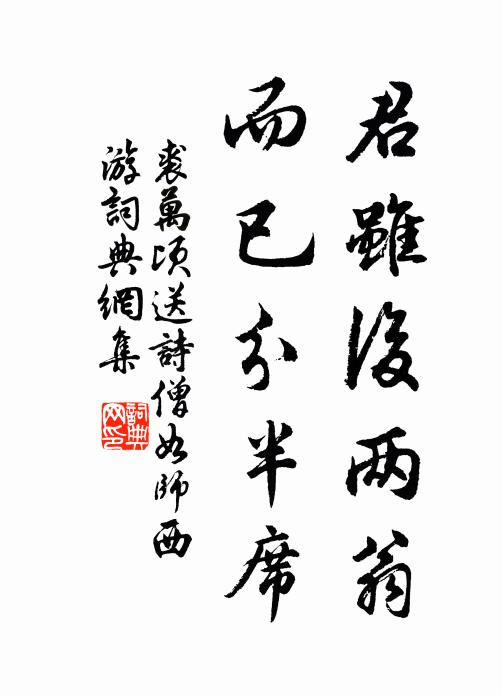 君雖後两翁
而已分半席
裘萬頃送詩僧如師西
游詞典網集
詞典
网印